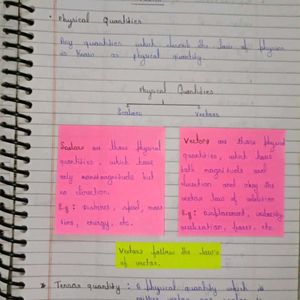 Physical Quantities
Any quantities which describ the law of physics
is known as physical quantity.
Physical Quantities
Scalars Vectors
Scalars are those physical
quantities, which have
only magnitude but
no direction.
E.g: Distance, speed, mass
time, energy, etc.
Vectors are those physical
quantities, which have
both magnitude and
direction and obey the
vector law of addition
E.g: Displacement, velocity
acceleration, force, etc.
Vectors follow the laws
of vector.
* Tensor quantity : A physical quantity which is
neither vector nor